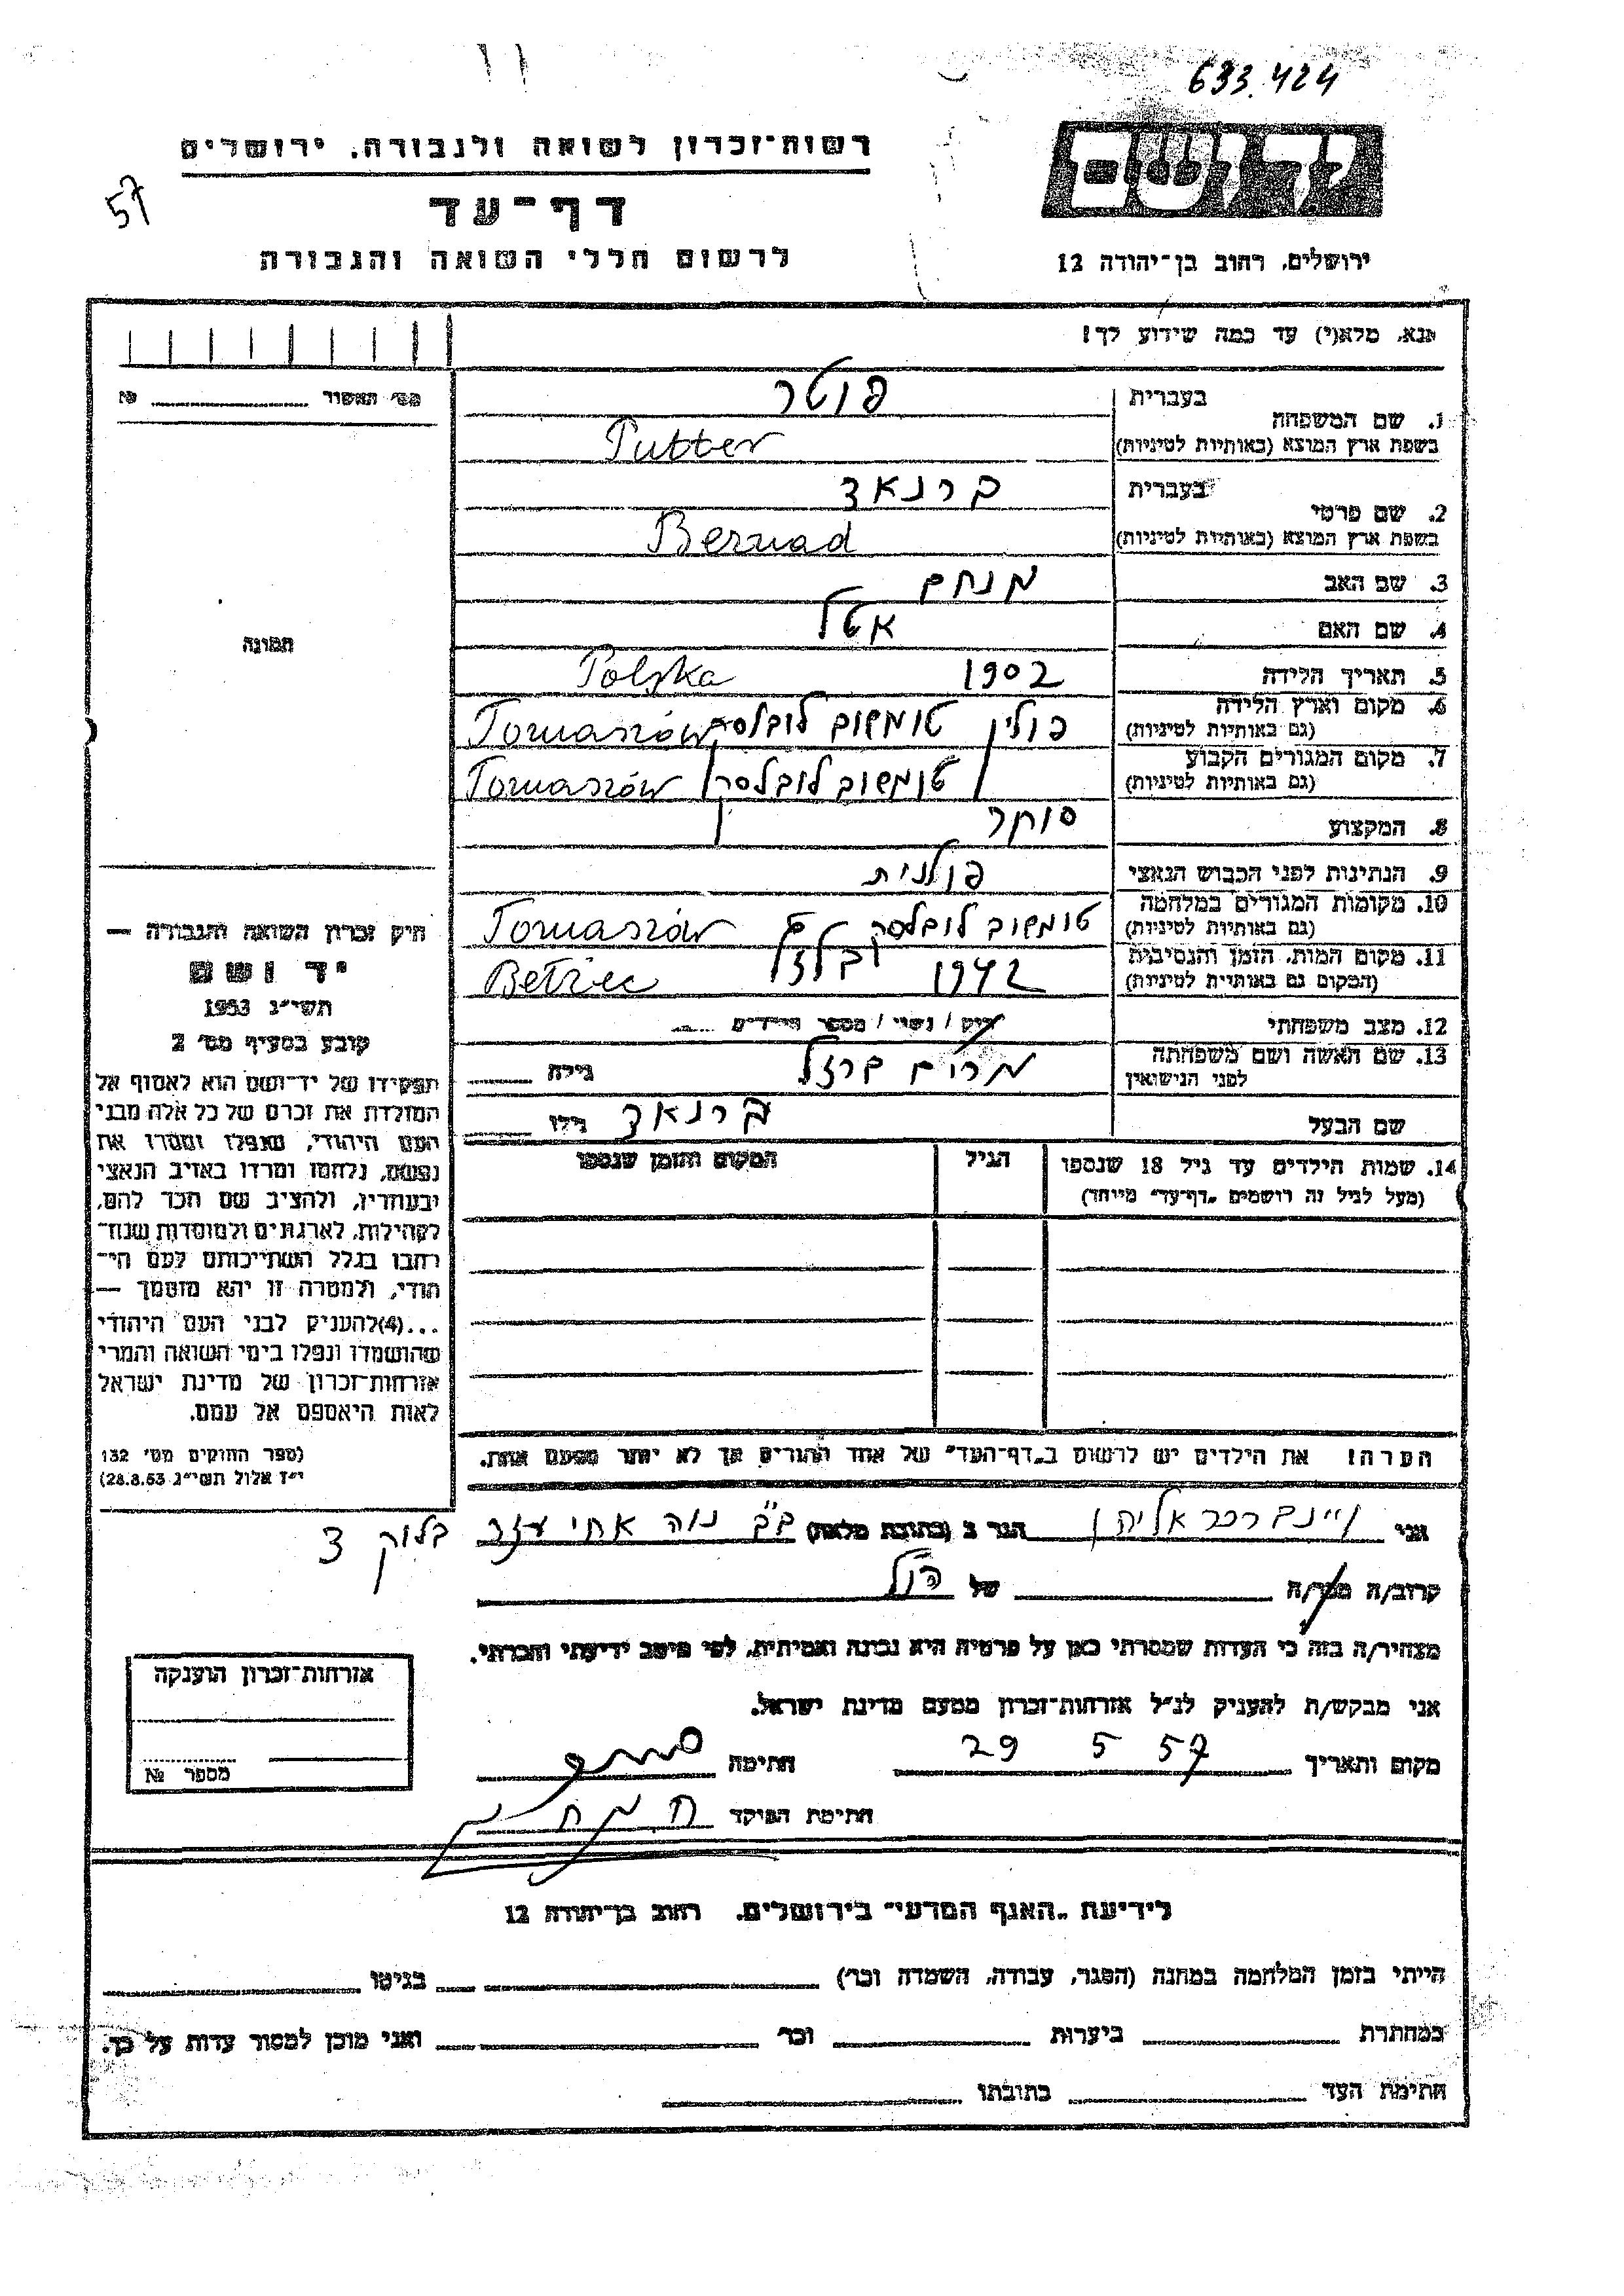 633.424
רשות־זכרון לשואה ולגבורה, ירושלים
57
דף־עד
לרשום חללי השואה והגבורה
יד ושם
ירושלים, רחוב בן־יהודה 12
נא, מלא(י) עד כמה שידוע לך!
מס׳ האשור № 
1. שם המשפחה
בעברית פוטר
בשפת ארץ המוצא (באותיות לטיניות) Putter
2. שם פרטי
בעברית ברנאד
בשפת ארץ המוצא (באותיות לטיניות) Bernad
3. שם האב מנחם
4. שם האם אטל
5. תאריך הלידה 1902 Polska
6. מקום וארץ הלידה (גם באותיות לטיניות) פולין טומשוב לובלסקי Tomaszów
7. מקום המגורים הקבוע (גם באותיות לטיניות) טומשוב לובלסקי Tomaszów
8. המקצוע סוחר
9. הנתינות לפני הכבוש הנאצי פולנית
10. מקומות המגורים במלחמה (גם באותיות לטיניות) טומשוב לובלסקי Tomaszów
11. מקום המות, הזמן והנסיבות (המקום גם באותיות לטיניות) 1942 בלזץ Bełżec
12. מצב משפחתי רוק / נשוי / מספר הילדים
13. שם האשה ושם משפחתה לפני הנישואין מרים ברזל גילה
שם הבעל ברנאד גילו
14. שמות הילדים עד גיל 18 שנספו
(מעל לגיל זה רושמים „דף־עד״ מיוחד)
הגיל
המקום והזמן שנספו
תמונה
חוק זכרון השואה והגבורה —
יד ושם
תשי״ג 1953
קובע בסעיף מס׳ 2
תפקידו של יד־ושם הוא לאסוף אל
המולדת את זכרם של כל אלה מבני
העם היהודי, שנפלו ומסרו את
נפשם, נלחמו ומרדו באויב הנאצי
ובעוזריו, ולהציב שם וזכר להם,
לקהילות, לארגונים ולמוסדות שנח־
רבו בגלל השתייכותם לעם הי־
הודי, ולמטרה זו יהא מוסמך —
...(4)להעניק לבני העם היהודי
שהושמדו ונפלו בימי השואה והמרי
אזרחות־זכרון של מדינת ישראל
לאות היאספם אל עמם.
(ספר החוקים מס׳ 132
י״ז אלול תשי״ג 28.8.53)
הערה! את הילדים יש לרשום ב„דף־העד״ של אחד ההורים אך לא יותר מפעם אחת.
אני הגר ב (כתובת מלאה) ב״ב נוה אחי עזר בלוק 3
קרוב/ה מכר/ה של הנ״ל
מצהיר/ה בזה כי העדות שמסרתי כאן על פרטיה היא נכונה ואמיתית, לפי מיטב ידיעתי והכרתי.
אני מבקש/ת להעניק לנ״ל אזרחות־זכרון מטעם מדינת ישראל.
מקום ותאריך 29 5 57 חתימה
חתימת הפוקד
אזרחות־זכרון הוענקה
מספר №
לידיעת „האגף המדעי״ בירושלים, רחוב בן־יהודה 12
הייתי בזמן המלחמה במחנה (הסגר, עבודה, השמדה וכו׳) בגיטו
במחתרת ביערות וכו׳ ואני מוכן למסור עדות על כך.
חתימת העד כתובתו